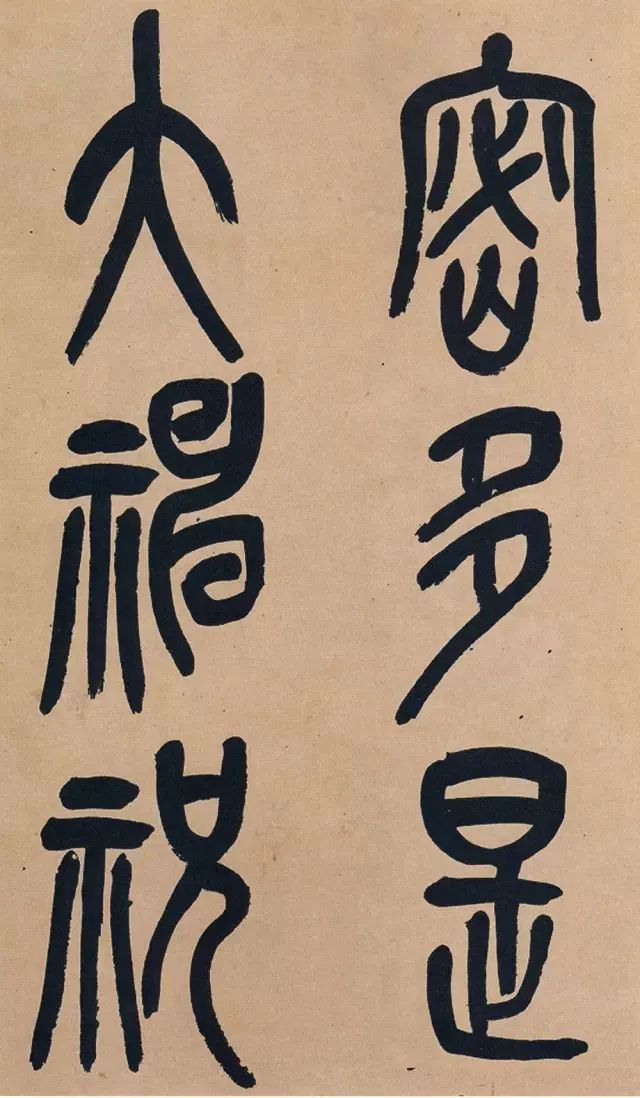 密多是
大神祝